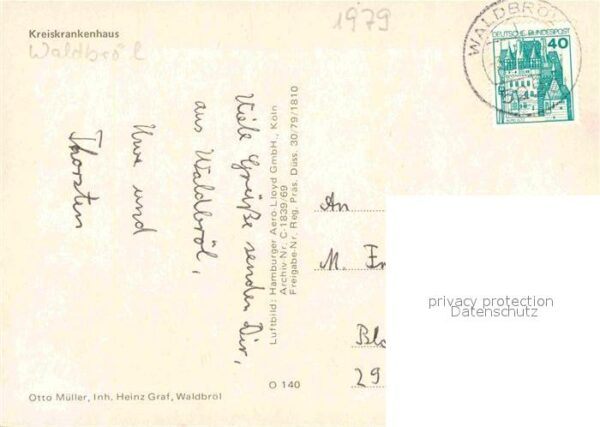 Kreiskrankenhaus
Waldbröl
1979
WALDBRÖL
DEUTSCHE BUNDESPOST
40
Viele Grüße senden Dir,
aus Waldbröl,
Uwe und
Thorsten
Luftbild: Hamburger Aero-Lloyd GmbH., Köln
Archiv-Nr. C-1839/69
Freigabe-Nr. Reg. Präs. Düss. 30/79/1810
An
M.
29
privacy protection
Datenschutz
O 140
Otto Müller, Inh. Heinz Graf, Waldbröl